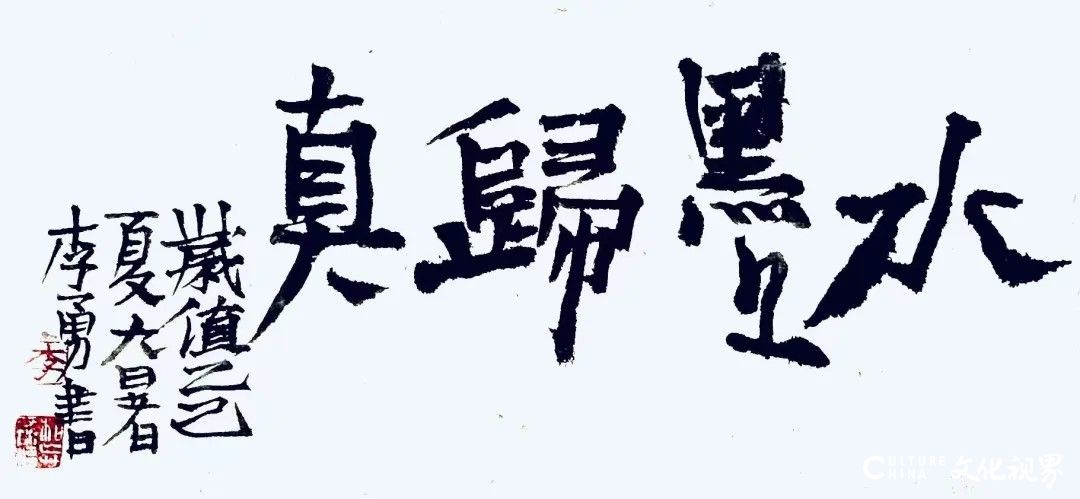 水墨歸真
歲值乙巳
夏大暑
李勇書
CULTURE
CHINA
文化视界